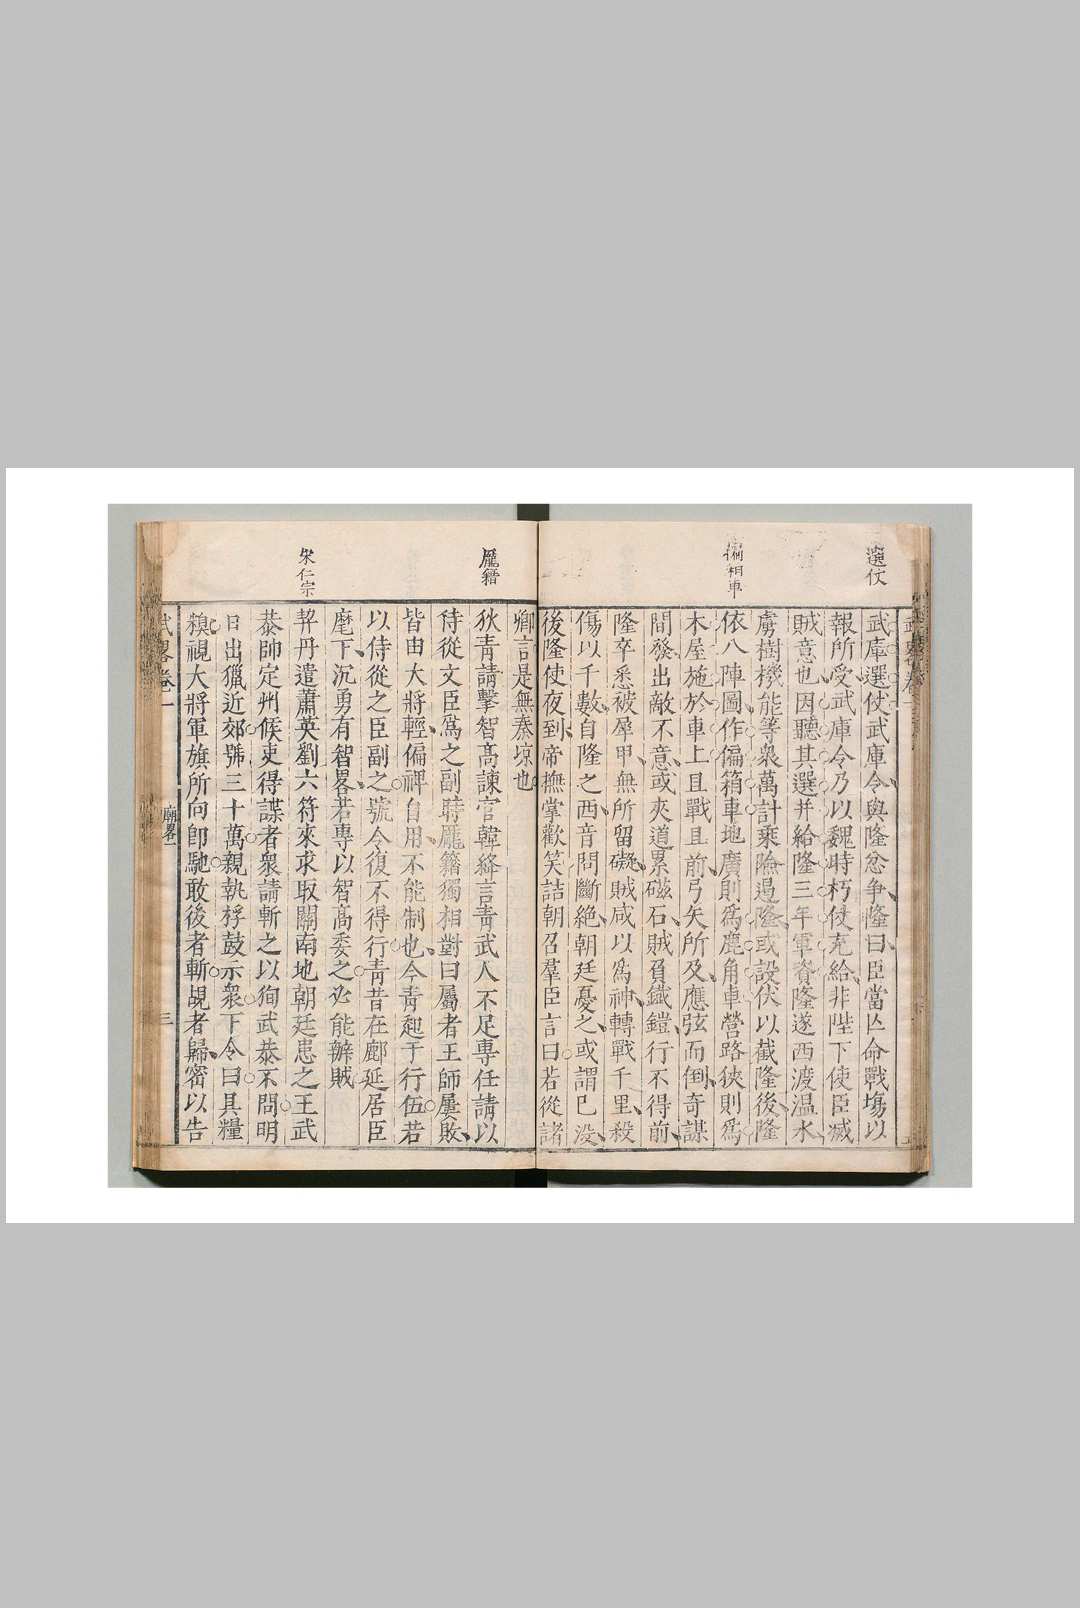 選仗
武庫選仗武庫令與隆忿爭隆曰臣當亾命戰塲以
報所受武庫令乃以魏時朽仗充給非陛下使臣滅
賊意也因聽其選并給隆三年軍資隆遂西渡温水
虜樹機能等衆萬計乗險遏隆或設伏以截隆後隆
偏箱車
依八陣圖作偏箱車地廣則爲鹿角車營路狹則爲
木屋施於車上且戰且前弓矢所及應弦而倒奇謀
間發出敵不意或夾道累磁石賊負鐵鎧行不得前
隆卒悉被犀甲無所留礙賊咸以爲神轉戰千里殺
傷以千數自隆之西音問斷絶朝廷憂之或謂已没
後隆使夜到帝撫掌歡笑詰朝召羣臣言曰若從諸
卿言是無秦凉也
龎籍
狄青請擊智高諫官韓絳言青武人不足專任請以
侍從文臣爲之副時龎籍獨相對曰屬者王師屢敗
皆由大將輕偏裨自用不能制也今青起于行伍若
以侍從之臣副之號令復不得行青昔在鄜延居臣
麾下沉勇有智畧若專以智高委之必能辦賊
宋仁宗
契丹遣蕭英劉六符來求取關南地朝廷患之王武
恭帥定州候吏得諜者衆請斬之以徇武恭不問明
日出獵近郊號三十萬親執桴鼓示衆下令曰具糧
糗視大將軍旗所向卽馳敢後者斬覘者歸密以告
武畧卷一
廟畧一
三